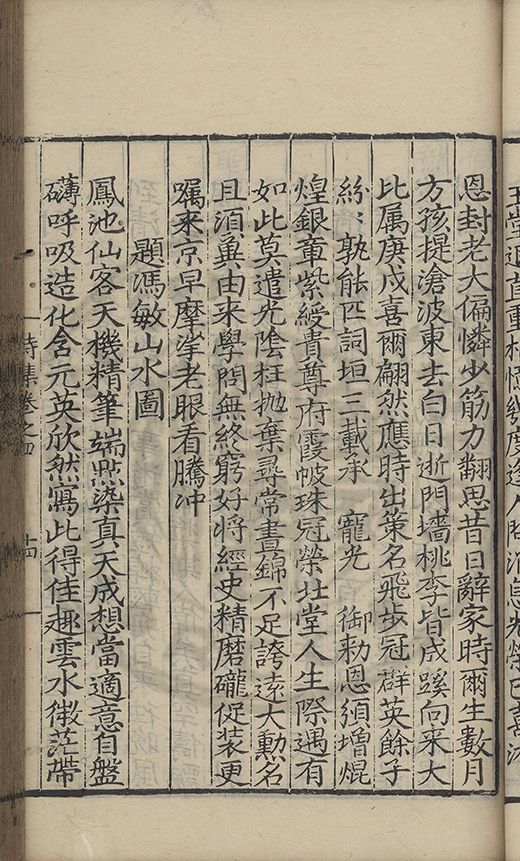 恩封老大偏憐少筋力翻思昔日辭家時爾生數月
方孩提滄波東去白日逝門墻桃李皆成蹊向來大
比属庚戌喜爾翩然應時出策名飛步冠群英餘子
紛〻孰能匹詞垣三載承　寵光　御勑恩須增焜
煌銀章紫綬貴尊府霞帔珠冠榮北堂人生際遇有
如此莫遣光陰枉抛棄尋常晝錦不足誇遠大勳名
且須兾由來學問無終窮好將經史精磨礲促装更
囑來京早摩挲老眼看騰冲
題馮敏山水圖
鳳池仙客天機精筆端㸃染真天成想當適意自盤
礴呼吸造化含元英欣然寫此得佳趣雲水微茫帶
詩集卷之四　十四